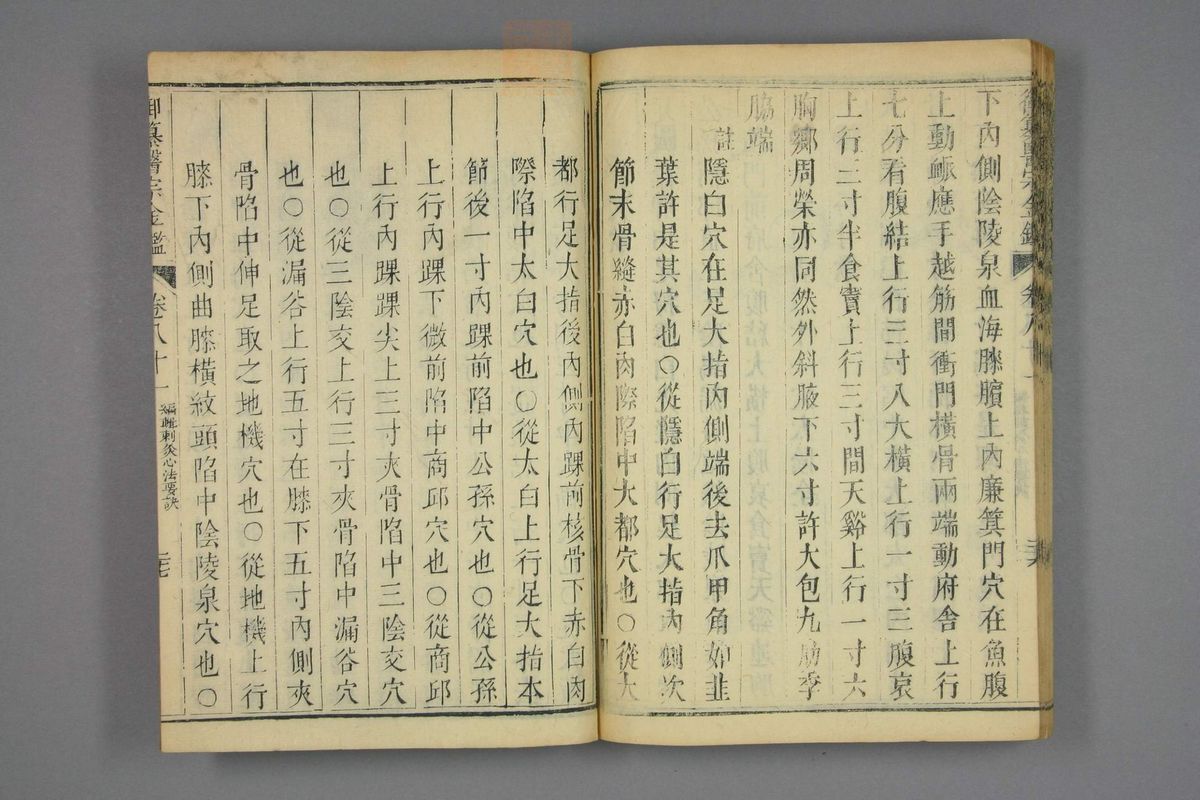 下內側陰陵泉血海膝臏上內廉箕門穴在魚腹
上動衇應手越筋間衝門橫骨兩端動府舍上行
七分看腹結上行三寸八大橫上行一寸三腹哀
上行三寸半食竇上行三寸間天谿上行一寸六
胸鄉周榮亦同然外斜腋下六寸許大包九肋季
脇端
註隱白穴在足大指內側端後去爪甲角如韭
葉許是其穴也〇從隱白行足大指內側次
節末骨縫赤白肉際陷中大都穴也〇從大
都行足大指後內側內踝前核骨下赤白肉
際陷中太白穴也〇從太白上行足大指本
節後一寸內踝前陷中公孫穴也〇從公孫
上行內踝下微前陷中商邱穴也〇從商邱
上行內踝踝尖上三寸夾骨陷中三陰交穴
也〇從三陰交上行三寸夾骨陷中漏谷穴
也〇從漏谷上行五寸在膝下五寸內側夾
骨陷中伸足取之地機穴也〇從地機上行
膝下內側曲膝橫紋頭陷中陰陵泉穴也〇
御纂醫宗金鑑 卷八十一 編輯刺灸心法要訣